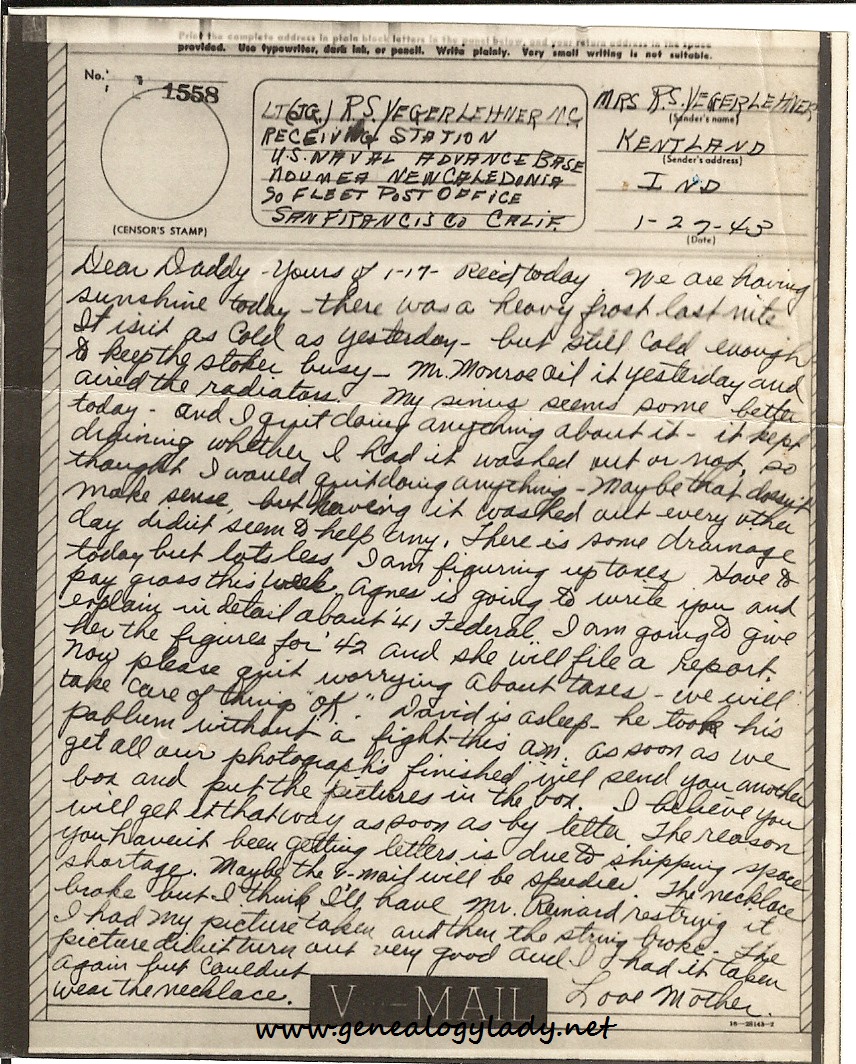 Print the complete address in plain block letters in the panel below, and your return address in the space
provided. Use typewriter, dark ink, or pencil. Write plainly. Very small writing is not suitable.
No.
1558
(CENSOR'S STAMP)
LT(JG.) R.S. YEGERLEHNER M.C.
RECEIVING STATION
U.S. NAVAL ADVANCE BASE
NOUMEA NEW CALEDONIA
SO FLEET POST OFFICE
SAN FRANCISCO CALIF.
MRS R.S. YEGERLEHNER
(Sender's name)
KENTLAND
(Sender's address)
IND
1-27-43
(Date)
Dear Daddy - Yours of 1-17- Rec'd today. We are having
sunshine today - there was a heavy frost last nite
It isn't as cold as yesterday - but still cold enough
to keep the stoker busy - Mr. Monroe oil it yesterday and
aired the radiators. My sinus seems some better
today - and I quit doing anything about it - it kept
draining whether I had it washed out or not, so
thought I would quit doing anything - Maybe that doesn't
make sense, but having it washed out every other
day didn't seem to help any. There is some drainage
today but lots less. I am figuring up taxes. Have to
pay gross this week. Agnes is going to write you and
explain in detail about '41 Federal. I am going to give
her the figures for '42 and she will file a report.
Now please quit worrying about taxes - we will
take care of thing "ok." David is asleep - he took his
pablum without a fight this am. as soon as we
get all our photographs finished will send you another
box and put the pictures in the box. I believe you
will get it that way as soon as by letter The reason
you haven't been getting letters is due to shipping space
shortage. Maybe the v-mail will be speedier. The necklace
broke but I think I'll have Mr. Reinard restring it
I had my picture taken and then the string broke. The
picture didn't turn out very good and I had it taken
again but couldn't
wear the necklace.
Love Mother.
V--MAIL
16-28143-2
www.genealogylady.net